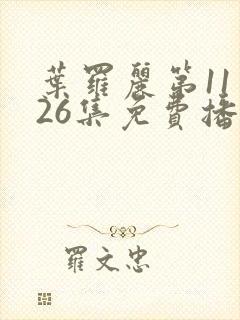 葉羅麗第11
26集免費播
羅文忠